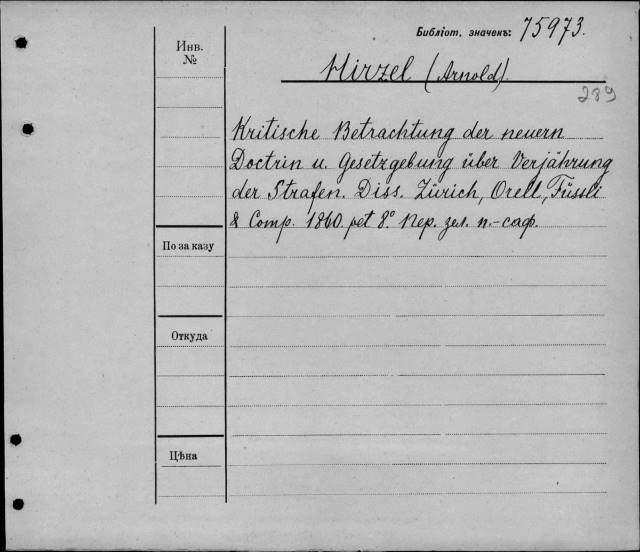 Библіот. значекъ: 75973.
Инв.
№
Hirzel (Arnold).
289
Kritische Betrachtung der neuern
Doctrin u. Gesetzgebung über Verjährung
der Strafen. Diss. Zürich, Orell, Füssli
& Comp. 1860. pet 8º. Пер. зел. п.-саф.
По заказу
Откуда
Цѣна